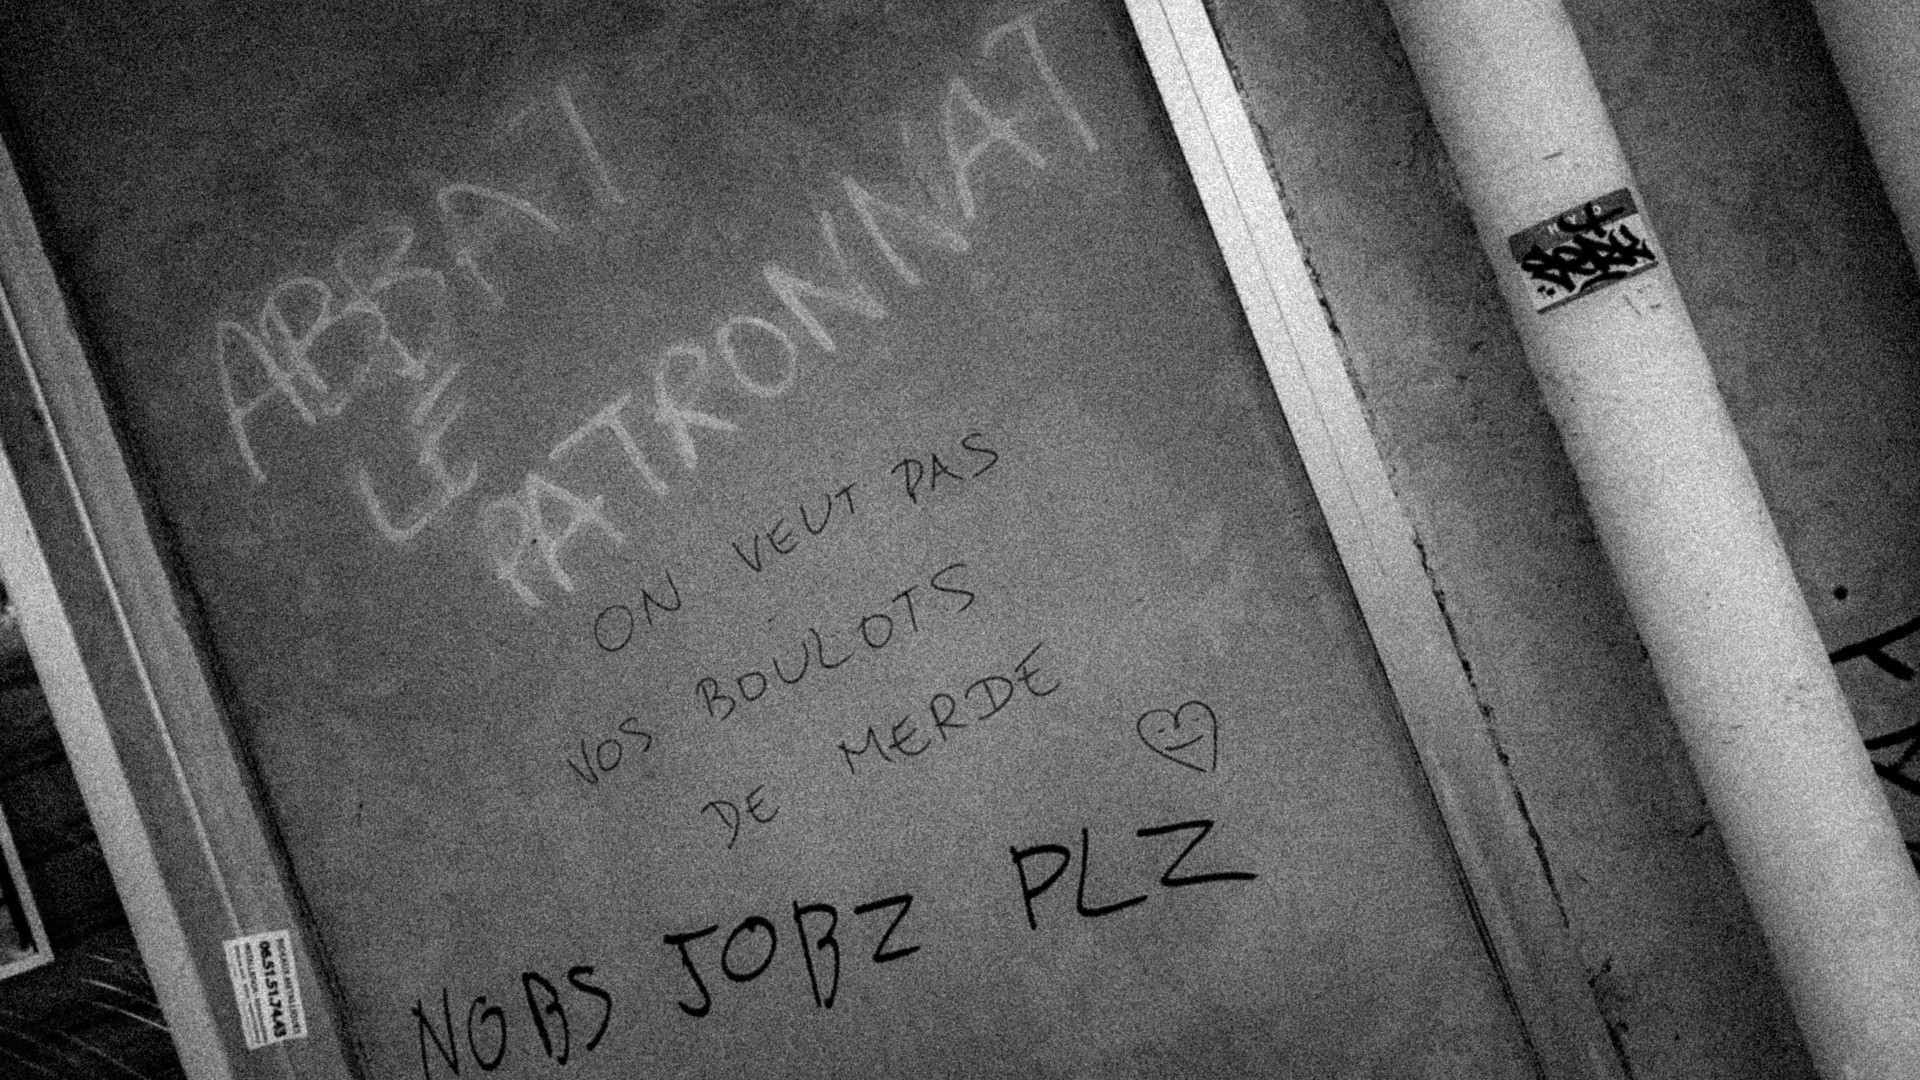 ABBAT
LE
PATRONNAT
ON VEUT PAS
VOS BOULOTS
DE MERDE
NOBS JOBZ PLZ
06.51.51.74.43